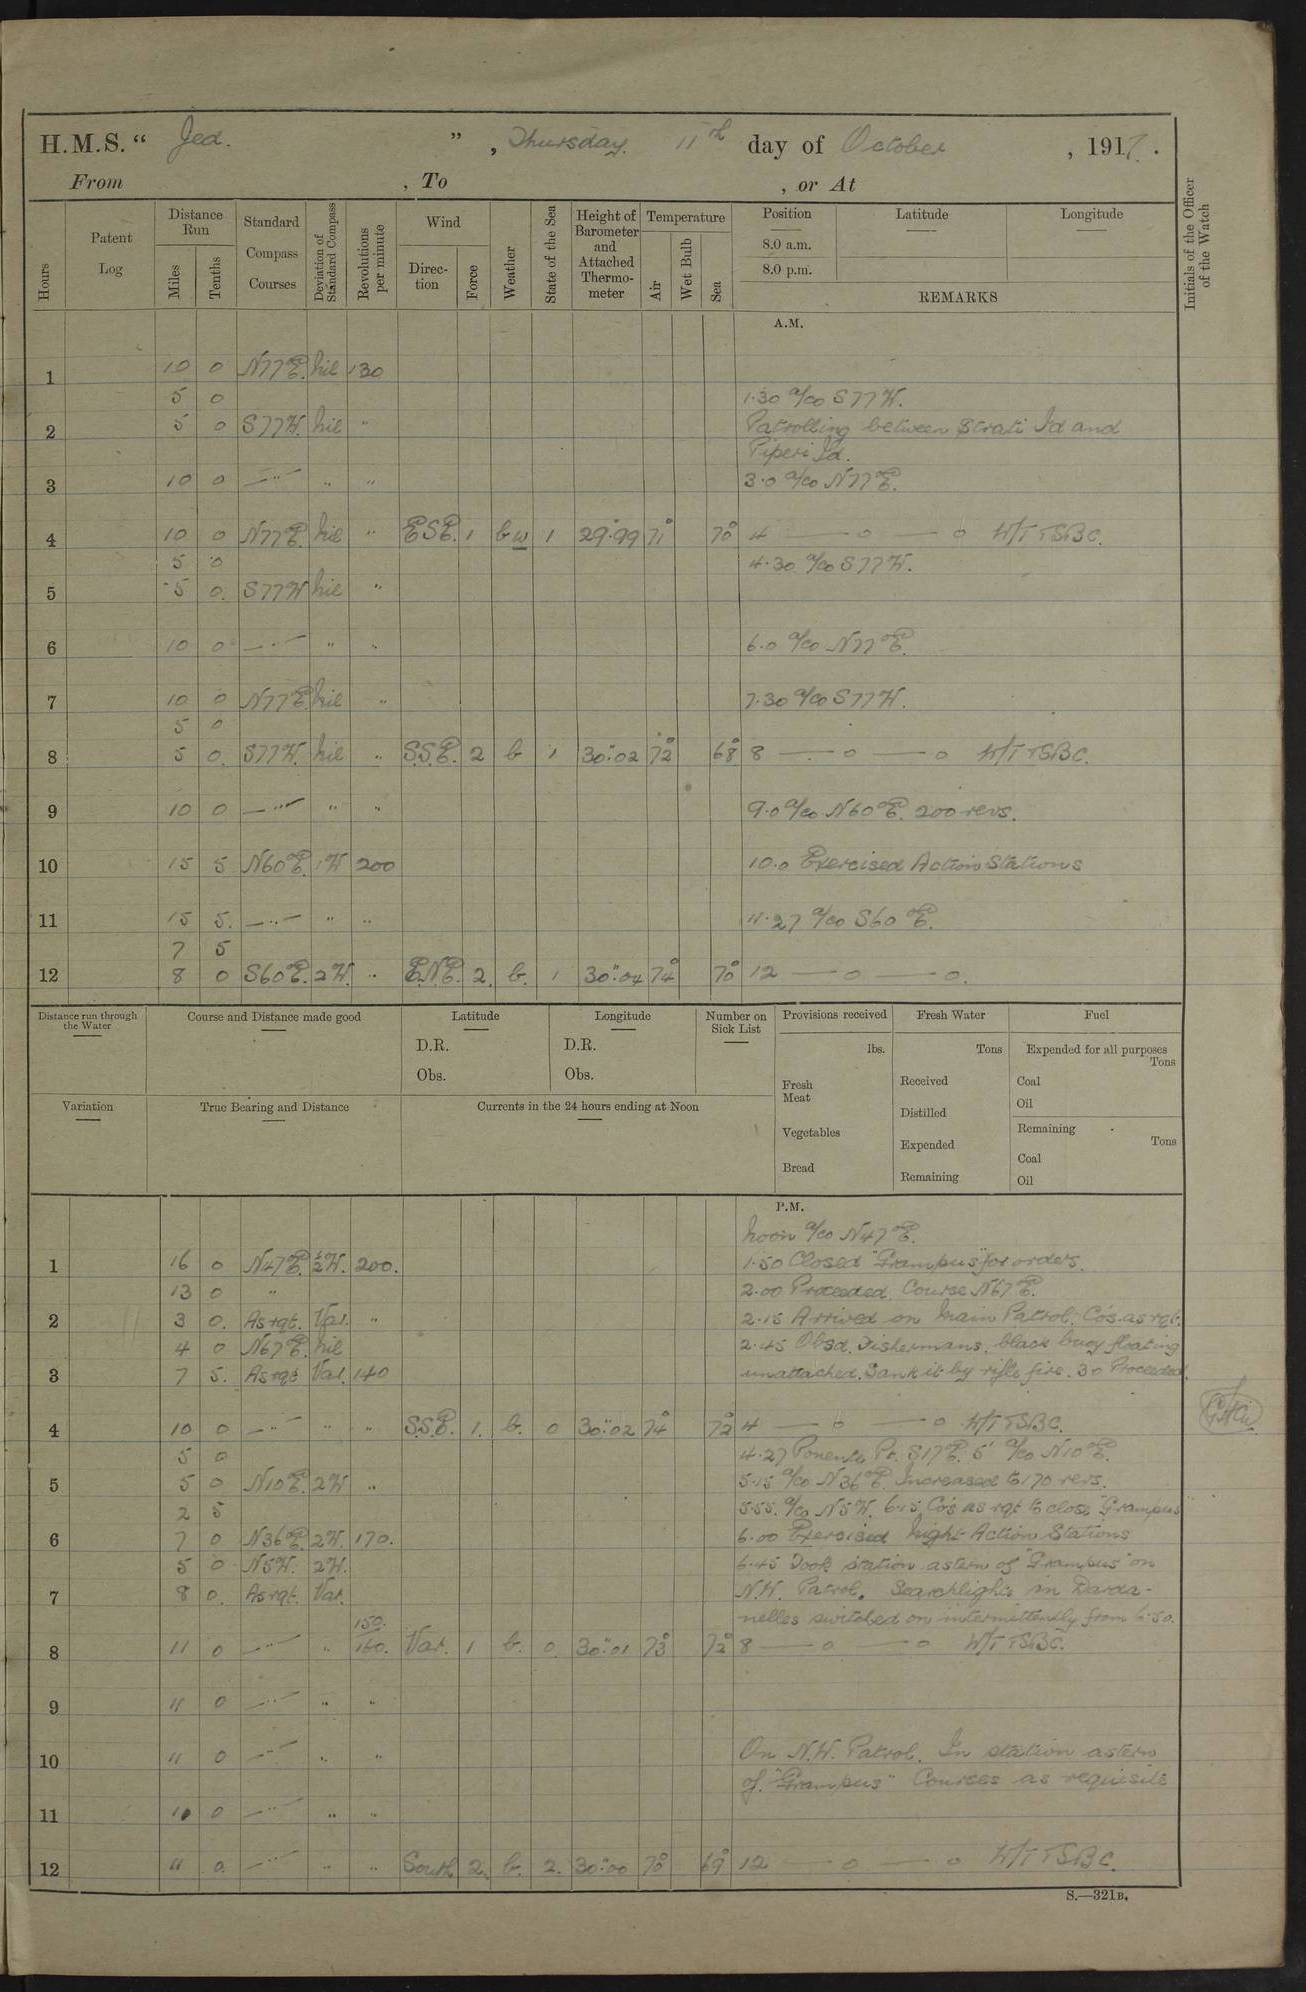 H.M.S. “ Jed. ” , Thursday. 11th day of October , 1917.
From , To , or At
Hours
Patent Log
Distance Run
Miles
Tenths
Standard Compass Courses
Deviation of Standard Compass
Revolutions per minute
Wind
Direc-tion
Force
Weather
State of the Sea
Height of Barometer and Attached Thermo-meter
Temperature
Air
Wet Bulb
Sea
Position
8.0 a.m.
8.0 p.m.
Latitude
Longitude
REMARKS
Initials of the Officer of the Watch
A.M.
1 10 0 N77E. Nil 130
5 0 1.30 a/co S77W.
2 5 0 S77W. Nil " Patrolling between Strati Id and
Piperi Id.
3 10 0 —"— " " 3.0 a/co N77E.
4 10 0 N77E. Nil " ESE. 1 bw 1 29.99 71° 70° 4 — o — o W/T TSBC.
5 0 4.30 a/co S77W.
5 5 0. S77W Nil "
6 10 0 —"— " " 6.0 a/co N77E.
7 10 0 N77E. Nil " 7.30 a/co S77W.
5 0
8 5 0. S77W. Nil " S.S.E. 2 b 1 30.02 72° 68° 8 — o — o W/T TSBC.
9 10 0 —"— " " 9.0 a/co N60E. 200 revs.
10 15 5 N60E. 1W 200 10.0 Exercised Action Stations
11 15 5. —"— " " 11.27 a/co S60E.
7 5
12 8 0 S60E. 2W. " E.N.E. 2. b. 1 30.04 74° 70° 12 — o — o.
Distance run through the Water
Course and Distance made good
Latitude
D.R.
Obs.
Longitude
D.R.
Obs.
Number on Sick List
Provisions received
lbs.
Fresh Meat
Vegetables
Bread
Fresh Water
Tons
Received
Distilled
Expended
Remaining
Fuel
Expended for all purposes
Tons
Coal
Oil
Remaining
Tons
Coal
Oil
Variation
True Bearing and Distance
Currents in the 24 hours ending at Noon
P.M.
Noon a/co N47E.
1 16 0 N47E. ½W. 200. 1.50 Closed "Grampus" for orders.
13 0 " 2.00 Proceeded. Course N67E.
2 3 0. As rqt. Var. " 2.15 Arrived on Main Patrol. Co's. as rqt.
4 0 N67E. Nil 2.45 Obsd. Fishermans, black buoy floating
3 7 5. As rqt Var. 140 unattached. Sank it by rifle fire. 3.0 Proceeded.
4 10 0 —"— " " S.S.E. 1. b. 0 30.02 74° 72° 4 — o — o W/T TSBC.
5 0 4.27 Ponente Pt. S17E. 5' a/co N10E.
5 5 0 N10E. 2W " 5.15 a/co N36E. Increased to 170 revs.
2 5 5.55. a/co N5W. 6.15. Co's as rqt to close "Grampus"
6 7 0 N36E. 2W. 170. 6.00 Exercised Night Action Stations
5 0 N5W. 2W. 6.45 Took station astern of "Grampus" on
7 8 0. As rqt. Var. N.W. Patrol. Searchlights in Darda-
150. nelles switched on intermittently from 6.50.
8 11 0 —"— " 160. Var. 1 b. 0. 30.01 73° 72° 8 — o — o W/T TSBC.
9 " 0 —"— " "
10 " 0 —"— " " On N.W. Patrol. In station astern
of "Grampus" Courses as requisite
11 11 0 —"— " "
12 " 0. —"— " " South 2. b. 2. 30.00 70° 69° 12 — o — o W/T TSBC.
S.—321B.